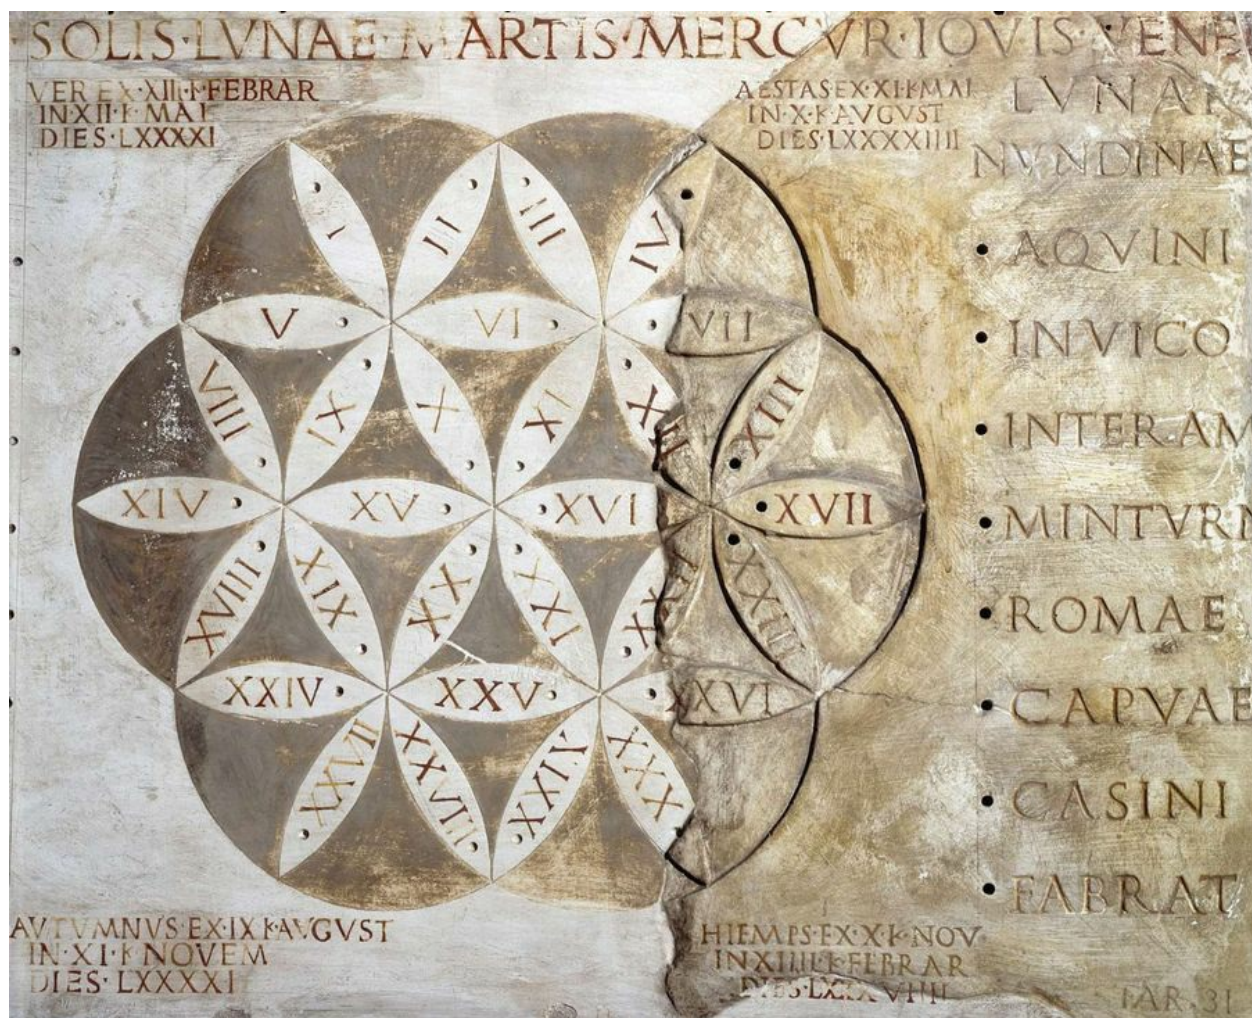 SOLIS·LVNAE·MARTIS·MERCVR·IOVIS·VENE
VER EX·XII·K·FEBRAR
IN·XII·K·MAI
DIES·LXXXXI
AESTAS EX·XI·K·MAI
IN·X·K·AVGVST
DIES·LXXXXIIII
LVNAR
NVNDINAE
I
II
III
IV
V
VI
VII
VIII
IX
X
XI
XII
XIII
XIV
XV
XVI
XVII
XVIII
XIX
XX
XXI
XXIII
XXIV
XXV
XXVI
XXVII
XXVIII
XXIX
XXX
AQVINI
INVICO
INTERAM
MINTVRN
ROMAE
CAPVAE
CASINI
FABRAT
AVTVMNVS·EX·IX·K·AVGVST
IN·XI·K·NOVEM
DIES·LXXXXI
HIEMPS·EX·X·K·NOV
IN XIIII·K·FEBRAR
DIES·LXXXVIIII